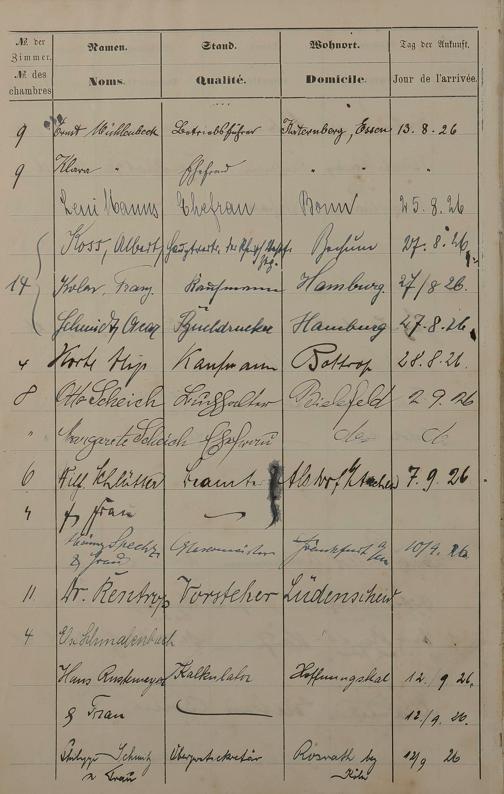 № der Zimmer. Namen. Stand. Wohnort. Tag der Ankunft.
№ des chambres Noms. Qualité. Domicile. Jour de l'arrivée.
9 Ernst Mühlenbeck Betriebsführer Katernberg, Essen 13.8.26
9 Klara " Ehefrau " " "
Leni Manns Ehefrau Bonn 25.8.26
Koss, Albert Beckum 27.8.26
14 Franz Kaufmann Hamburg 27/8 26.
Schmidt, Oscar Hamburg 27.8.26
4 Korte Kaufmann Bottrop 28.8.26.
8 Otto Scheich Buchhalter Bielefeld 2.9.26
" Margarete Scheich Ehefrau do do
6 Wilh. Schlütter Beamter Alsdorf b/Aachen 7.9.26
4 Frau
Specht Frankfurt a/M 10/9. 26.
& Frau
11 Dr. Rentrop Vorsteher Lüdenscheid
4 Schmalenbach
Hans Kalkulator Hoffnungsthal 12./9 26.
& Frau 12./9. 26.
Philipp Schmitz Oberpostsekretär Rösrath bey 12/9 26
u Frau Köln